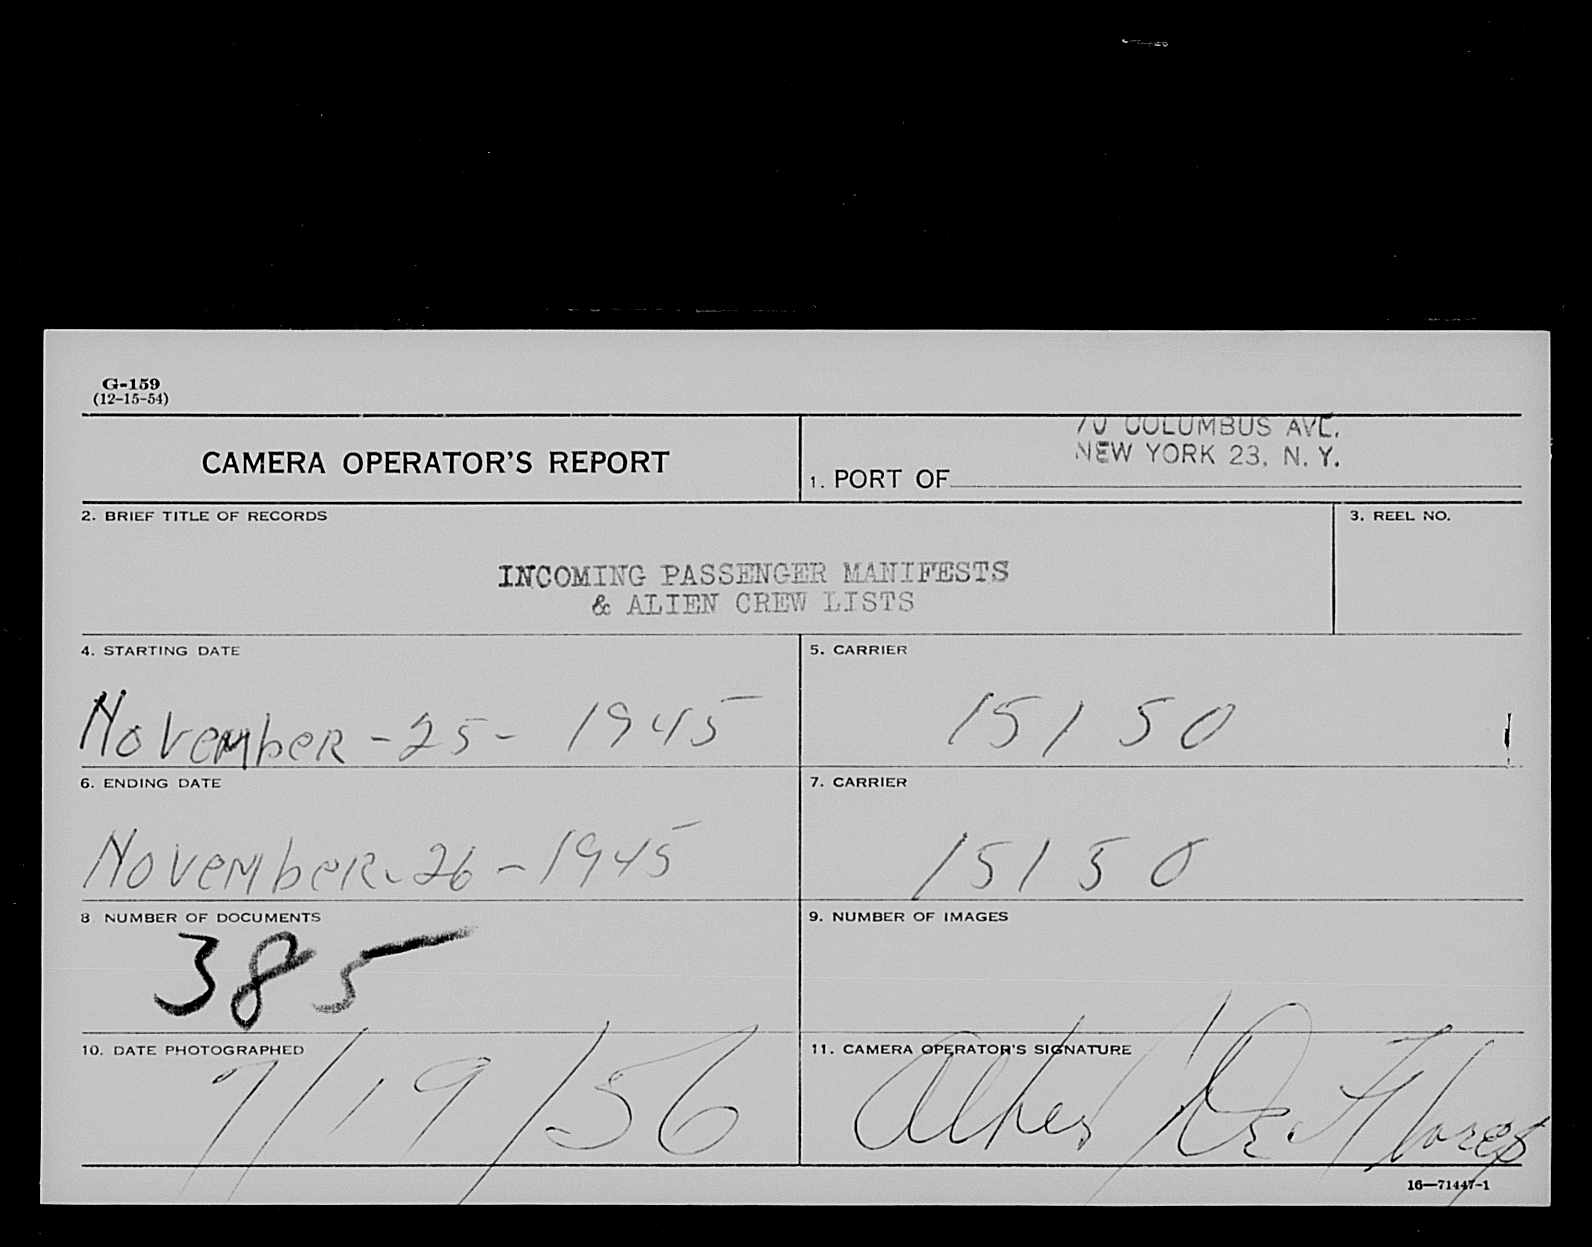 G-159
(12-15-54)
CAMERA OPERATOR'S REPORT
70 COLUMBUS AVE.
NEW YORK 23, N. Y.
1. PORT OF
2. BRIEF TITLE OF RECORDS
3. REEL NO.
INCOMING PASSENGER MANIFESTS
& ALIEN CREW LISTS
4. STARTING DATE
5. CARRIER
November - 25 - 1945
15150
6. ENDING DATE
7. CARRIER
November - 26 - 1945
15150
8. NUMBER OF DOCUMENTS
9. NUMBER OF IMAGES
385
10. DATE PHOTOGRAPHED
11. CAMERA OPERATOR'S SIGNATURE
7/19/56
16—71447-1